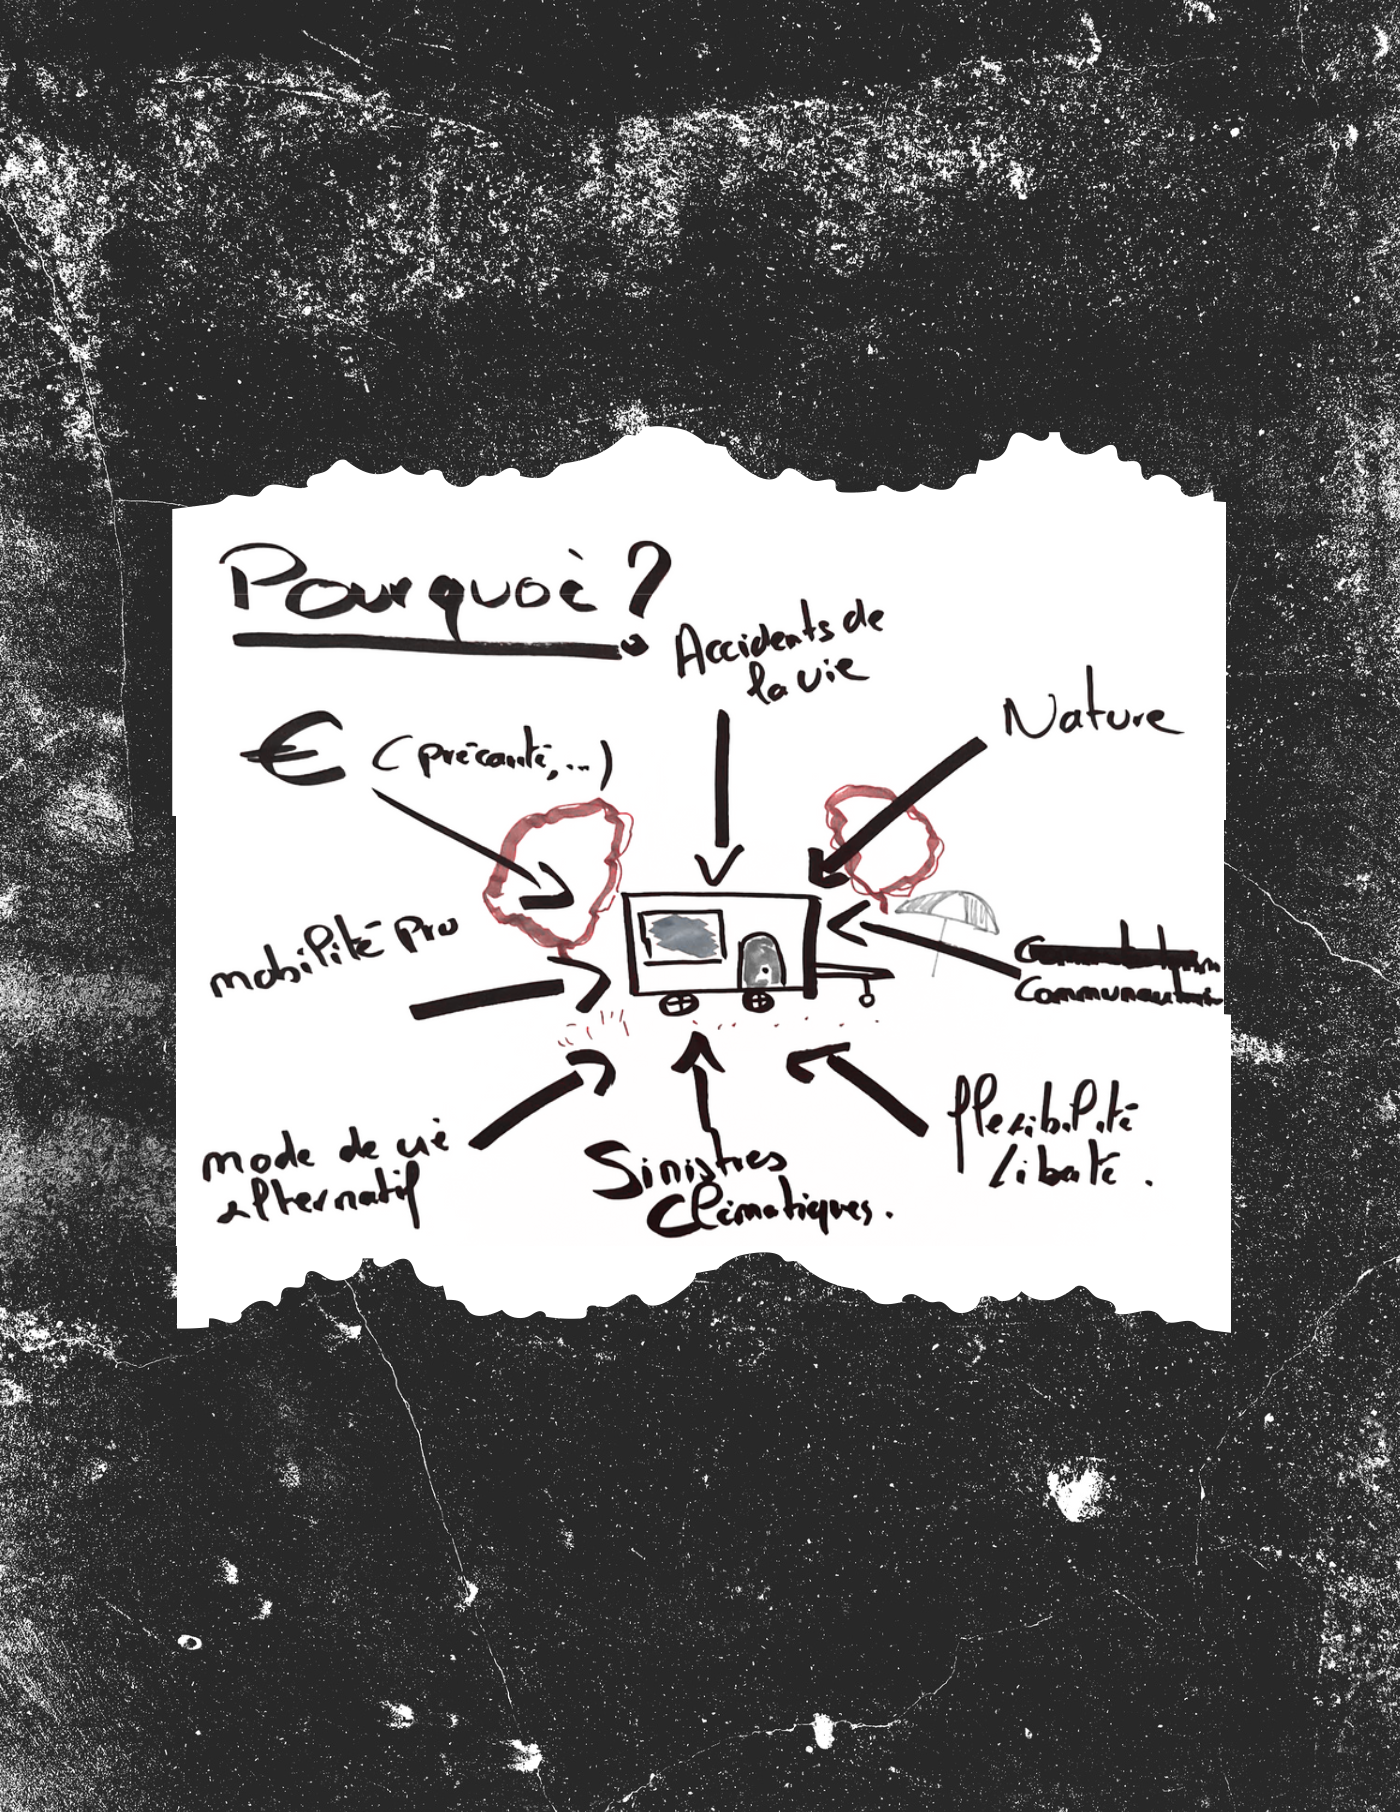 Pourquoi ?
Accidents de
la vie
Nature
€ (précarité,...)
mobilité pro
mode de vie
alternatif
Sinistres
Climatiques.
flexibilité
liberté.